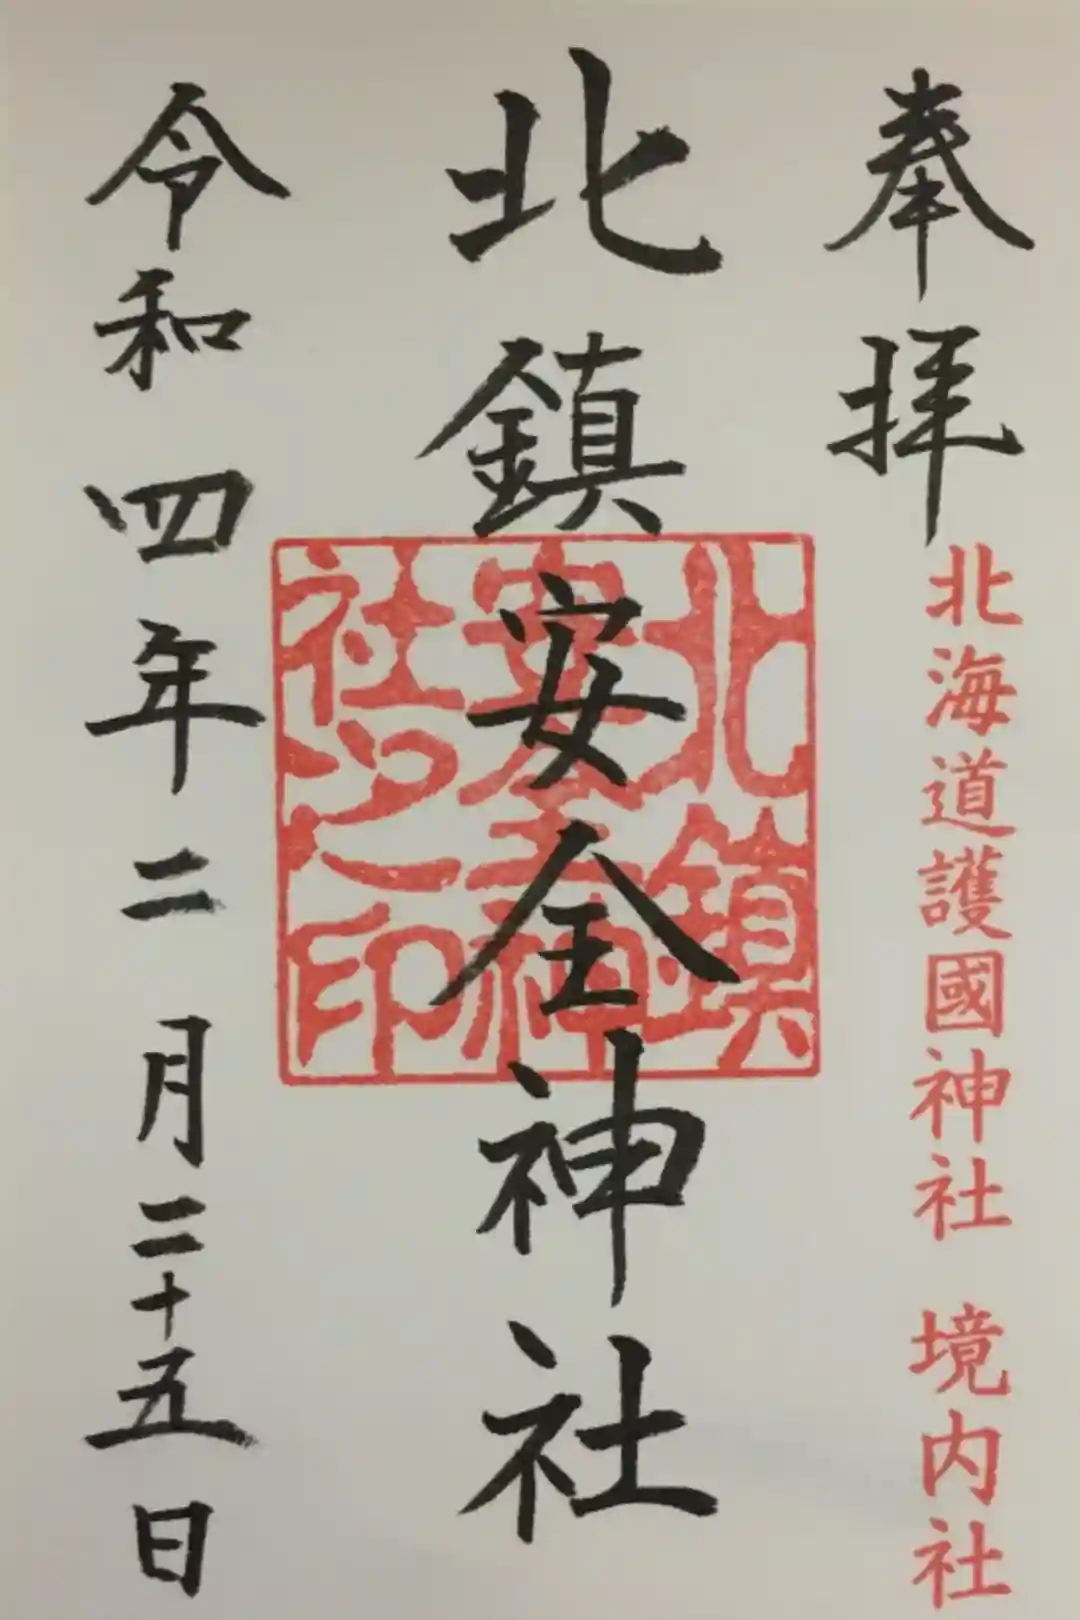 奉拝
北海道護國神社 境内社
北鎮安全神社
北鎮
安全神
社之印
令和四年二月二十五日